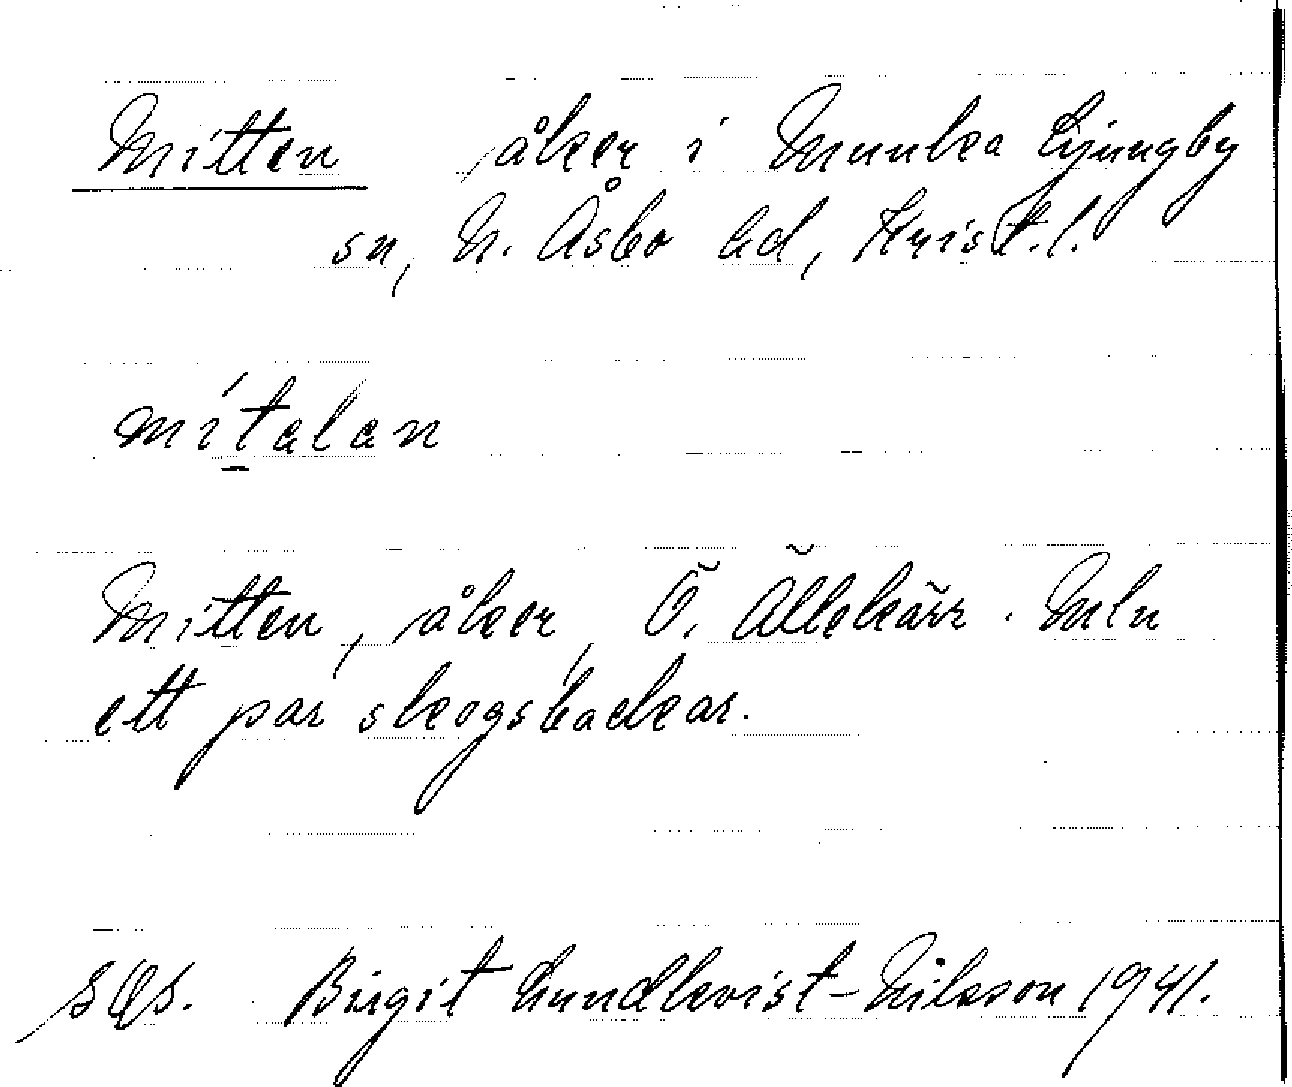 Mitten åker i Munka Ljungby
sn, N. Åsbo hd, Krist. l.
mítalan
Mitten, åker, Ö. Ällekärr. Mln
ett par skogsbackar.
Birgit Lundkvist-Nilsson 1941.